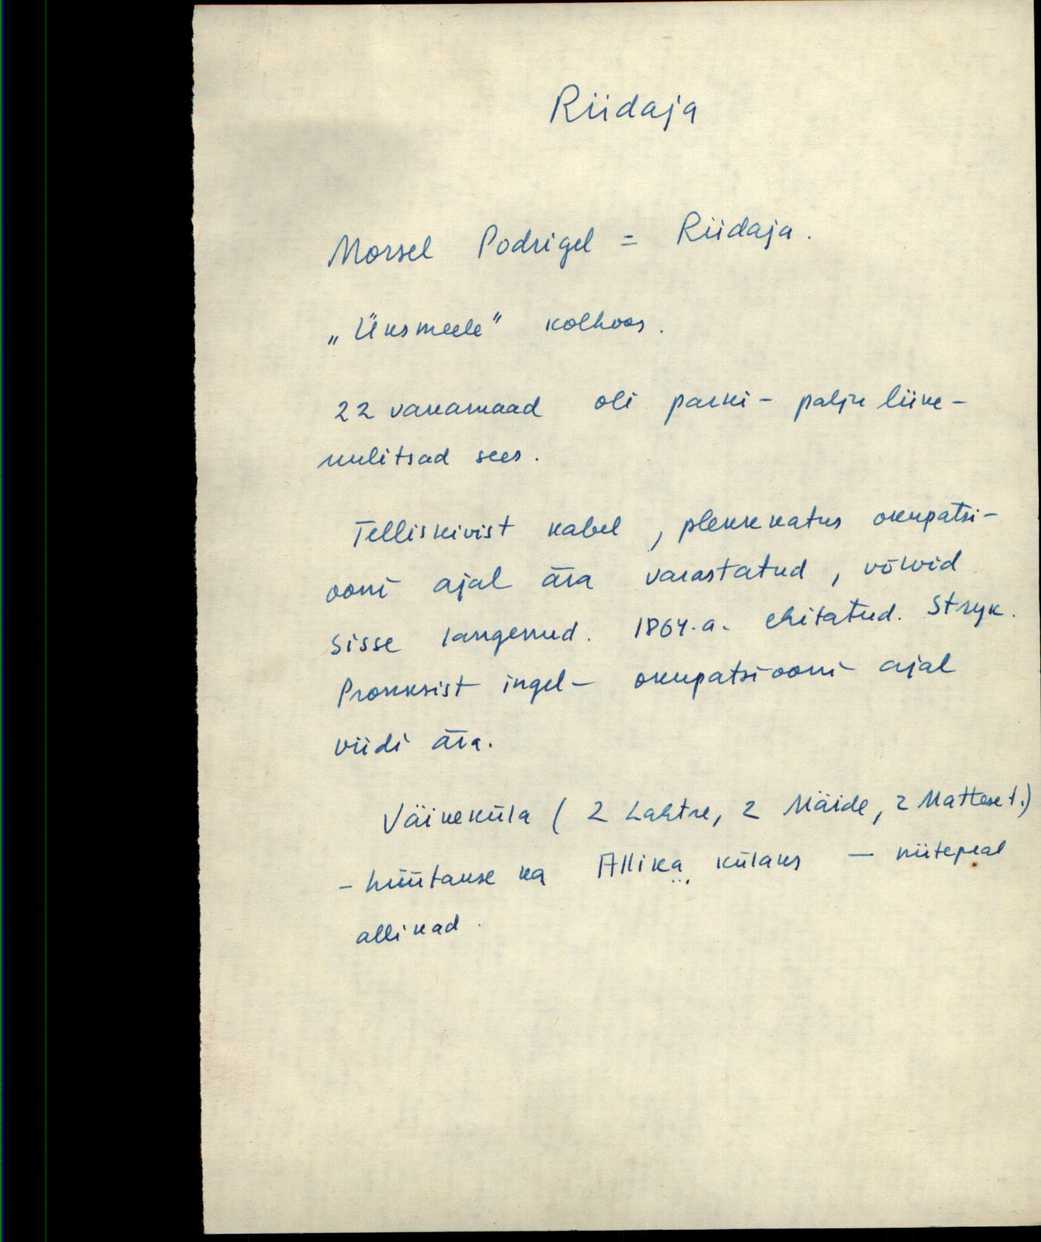 Riidaja
Morsel Podrigel = Riidaja.
„Üksmeele" kolhoos.
22 vakamaad oli parki - palju liike-
nulitsad sees.
Telliskivist kabel, plekk katus okupatsi-
ooni ajal ära varastatud, võlvid
sisse langenud. 1864.a. ehitatud. Stryk.
Pronksist ingel - okupatsiooni ajal
viidi ära.
Väikeküla (2 Lahtre, 2 Mäide, 2 t.)
- hüütakse ka Allika külaks - niitepeal
allikad.